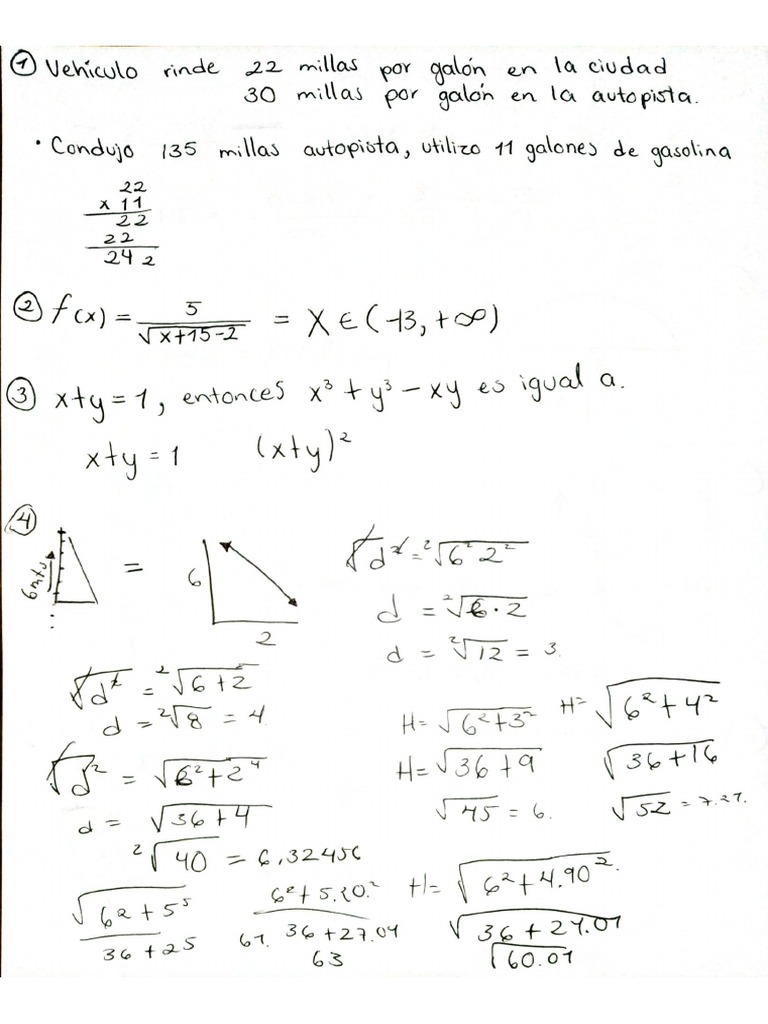 ① Vehículo rinde 22 millas por galón en la ciudad
30 millas por galón en la autopista.
• Condujo 135 millas autopista, utilizo 11 galones de gasolina
22
x 11
22
22
242
② f(x) = 5 / √x+15-2 = X ∈ (-13, +∞)
③ x+y = 1, entonces x³ + y³ - xy es igual a.
x+y = 1 (x+y)²
④
6 mts
=
6
2
√d² = ²√6² 2²
d = ²√6 · 2
d = ²√12 = 3.
√d² = ²√6+2
d = ²√8 = 4
√d² = √6²+2⁴
d = √36+4
²√40 = 6,32456
H = √6²+3²
H = √36+9
√45 = 6.
H = √6²+4²
√36+16
√52 = 7.21.
√6²+5⁵
36+25
6²+5.20.²
61. 36+27.04
63
H = √6²+4.90².
√36+24.01
√60.01